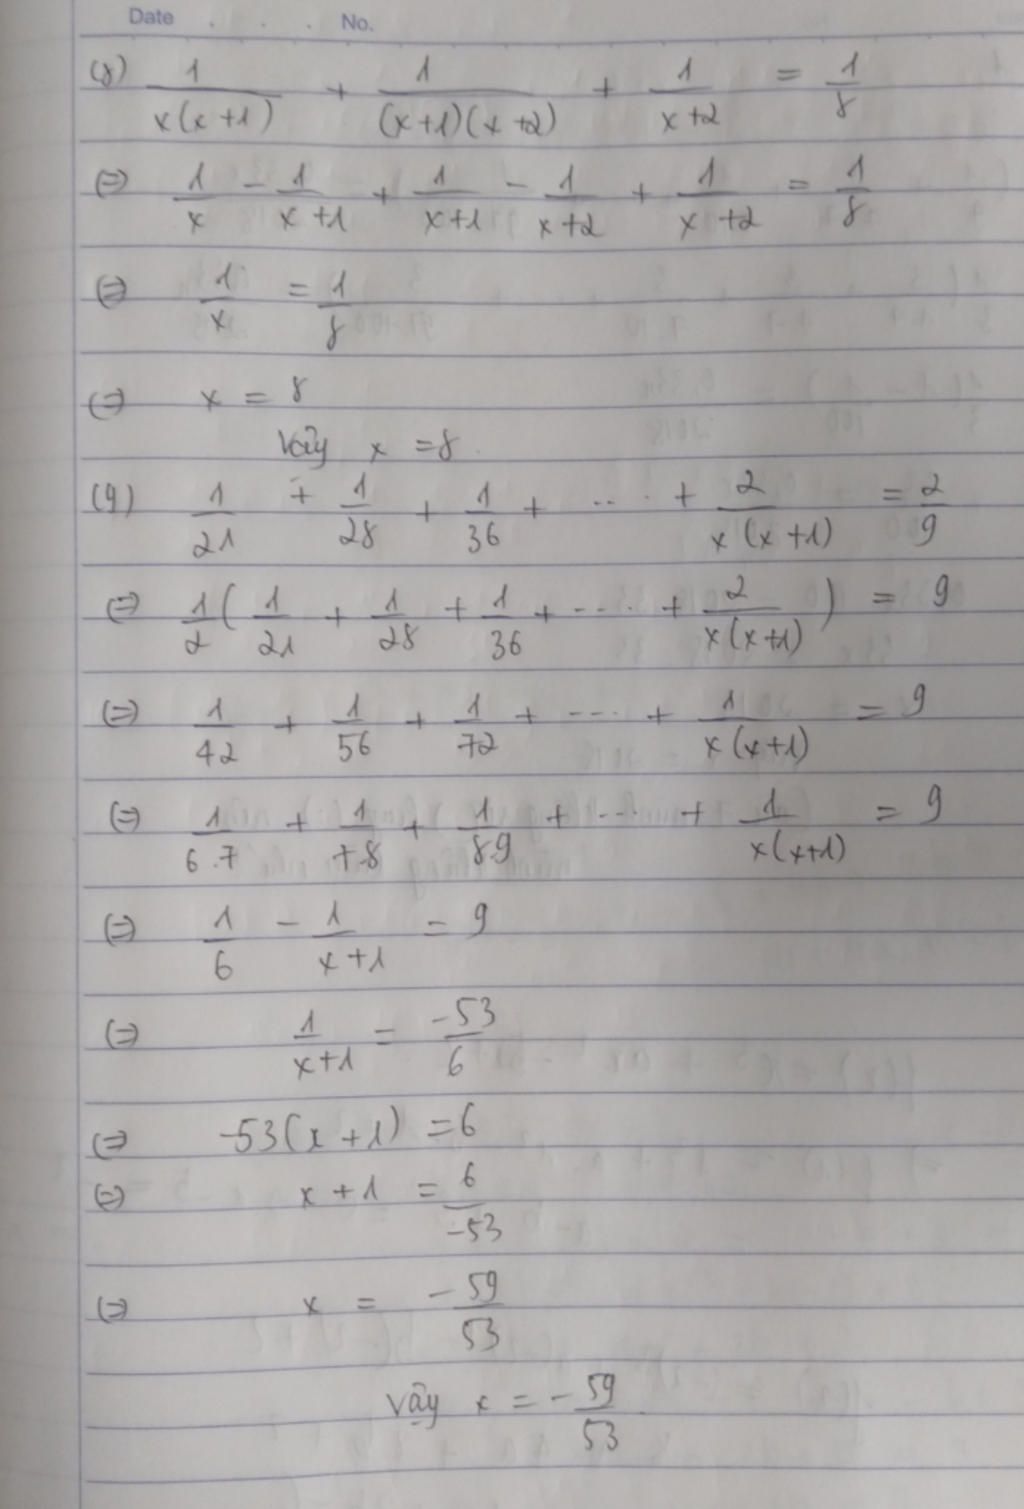 Date . . . No.
(8) 1/(x(x+1)) + 1/((x+1)(x+2)) + 1/(x+2) = 1/8
(=) 1/x - 1/(x+1) + 1/(x+1) - 1/(x+2) + 1/(x+2) = 1/8
(=) 1/x = 1/8
(=) x = 8
Vậy x = 8.
(9) 1/21 + 1/28 + 1/36 + .... + 2/(x(x+1)) = 2/9
(=) 1/2 (1/21 + 1/28 + 1/36 + .... + 2/(x(x+1))) = 9
(=) 1/42 + 1/56 + 1/72 + .... + 1/(x(x+1)) = 9
(=) 1/(6.7) + 1/(7.8) + 1/(8.9) + .... + 1/(x(x+1)) = 9
(=) 1/6 - 1/(x+1) = 9
(=) 1/(x+1) = -53/6
(=) -53(x+1) = 6
(=) x+1 = 6/-53
(=) x = -59/53
Vậy x = -59/53.